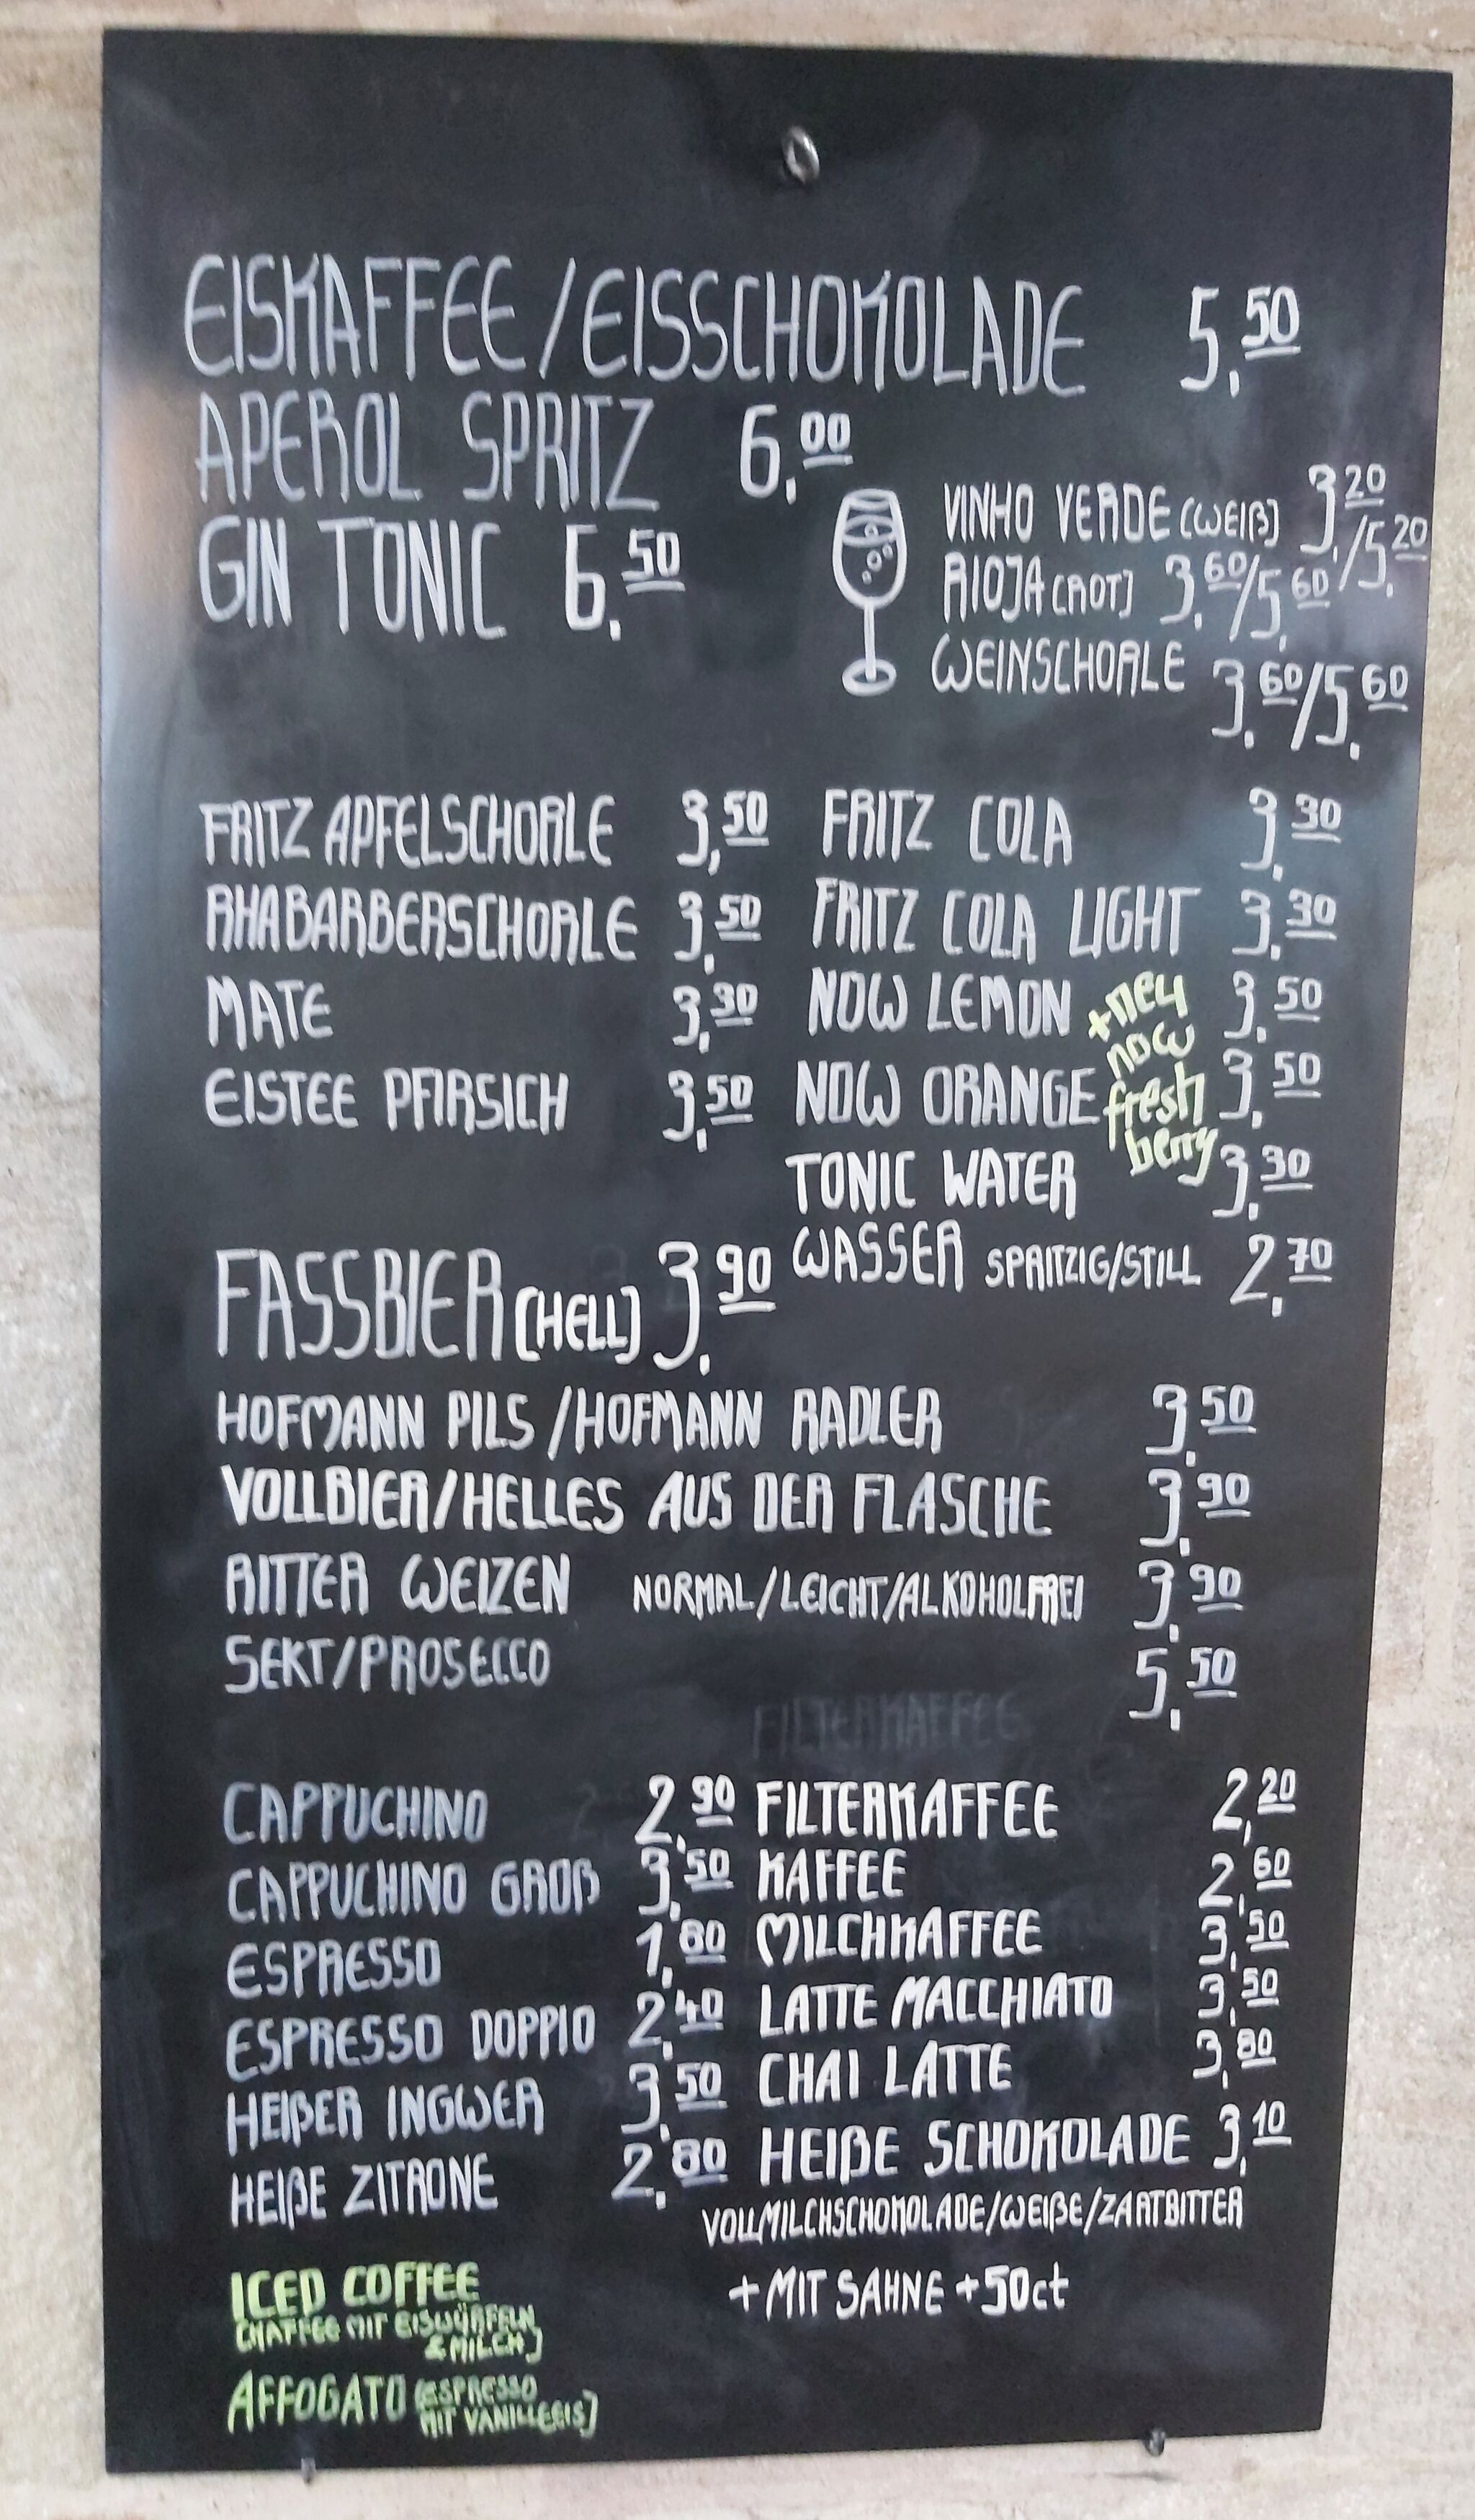 EISKAFFEE/EISSCHOKOLADE 5,50
APEROL SPRITZ 6,00
GIN TONIC 6,50
VINHO VERDE (WEIß) 3,20/5,20
RIOJA (ROT) 3,60/5,60
WEINSCHORLE 3,60/5,60
FRITZ APFELSCHORLE 3,50
RHABARBERSCHORLE 3,50
MATE 3,30
EISTEE PFIRSICH 3,50
FRITZ COLA 3,30
FRITZ COLA LIGHT 3,30
NOW LEMON 3,50
NOW ORANGE 3,50
+neu
now
fresh
berry
TONIC WATER 3,30
WASSER SPRITZIG/STILL 2,70
FASSBIER (HELL) 3,90
HOFMANN PILS /HOFMANN RADLER 3,50
VOLLBIER/HELLES AUS DER FLASCHE 3,90
RITTER WEIZEN NORMAL/LEICHT/ALKOHOLFREI 3,90
SEKT/PROSECCO 5,50
FILTERKAFFEE
CAPPUCHINO 2,90
CAPPUCHINO GROß 3,50
ESPRESSO 1,80
ESPRESSO DOPPIO 2,40
HEIßER INGWER 3,50
HEIßE ZITRONE 2,80
FILTERKAFFEE 2,20
KAFFEE 2,60
MILCHKAFFEE 3,50
LATTE MACCHIATO 3,50
CHAI LATTE 3,80
HEIßE SCHOKOLADE 3,10
VOLLMILCHSCHOKOLADE/WEIßE/ZARTBITTER
+MIT SAHNE +50ct
ICED COFFEE
(KAFFEE MIT EISWÜRFELN
& MILCH)
AFFOGATO (ESPRESSO
MIT VANILLEEIS)